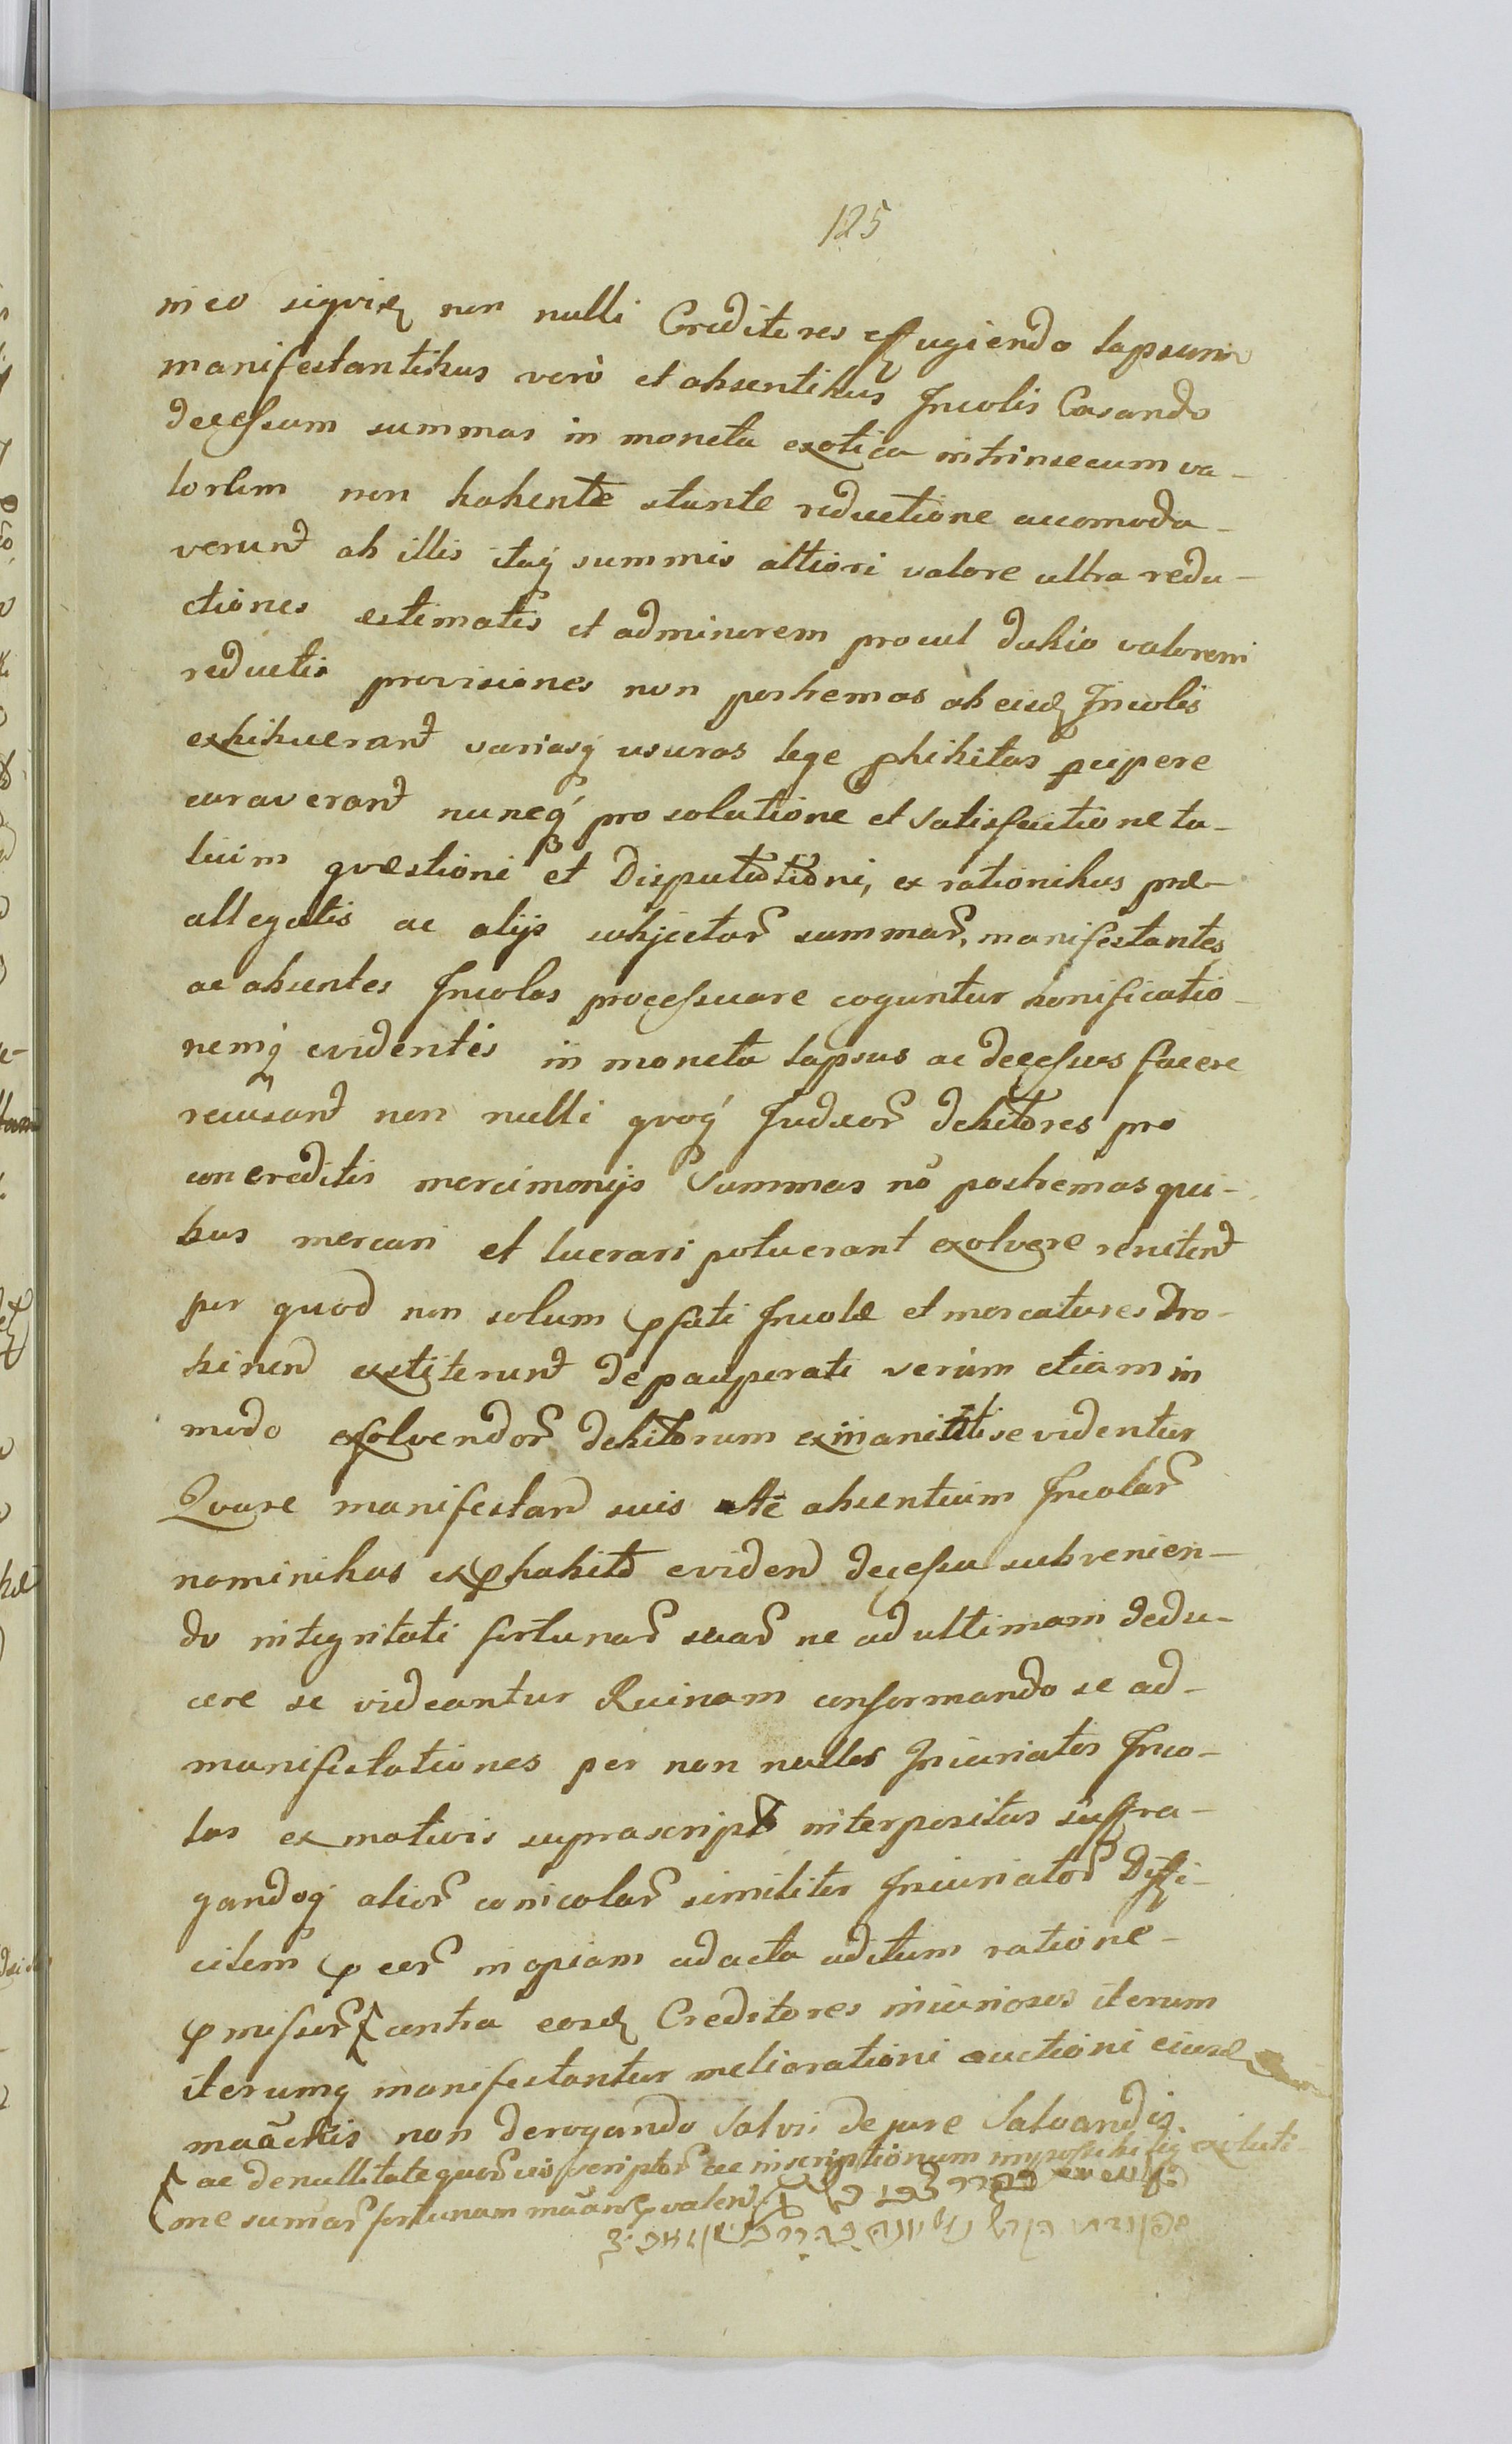 125
in eo siqvid non nulli Creditores effugiendo lapsum
manifestantibus verò et absentibus Incolis Casando
decessum summas in moneta exotica intrinsecum va-
lorem non habente stante reductione accomoda-
verunt ab illis itaq summis altiori valore ultra redu-
ctiones estimatis et ad minorem procul dubio valorem
reductis provisiones non postremas ab eisd Incolis
exhibuerant variasq usuras lege phibitas pcipere
curaverant nuncq pro solutione et satisfactione ta-
lium qvæstioni et Disputationi, ex rationibus præ-
allegatis ac alijs subjectar summar, manifestantes
ac absentes Incolas processuare coguntur bonificatio-
nemq evidentis in moneta lapsus ac decessus facere
recusant non nulli qvoq Judæor debitores pro
concreditis mercimonijs summas no postremas qui-
bus mercari et lucrari potuerant exolvere renitent
per quod non solum pfati Incolæ et mercatores Dro-
hinen extiterunt depauperati verùm etiam in
modo exolvendor debitorum exinaniti se videntur
Qvare manifestan suis et absentium Incolar
nominibus ex phabito eviden decessu subvenien-
do integritati fortunar suar ne ad ultimam dedu-
cere se videantur Ruinam conformando se ad-
manifestationes per non nullos Iniuriatos Inco-
las ex motivis suprascript interpositas suffra-
gandoq alior conicolar similiter Iniuriator Diffi-
cilem p eor inopiam ad acta aditum ratione-
pmissor contra eosd Creditores iniuriosos iterum
iterumq manifestantur meliorationi auctioni eiusd
maactis non derogando salvis de jure salvandis
ac de nullitate quorvis scriptor ac inscriptionum exoluti-
one sumar fortunam valen